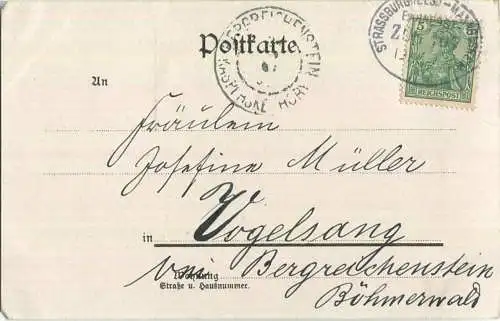 Postkarte.
BERGREICHENSTEIN
KAŠPERSKÉ HORY
STRASSBURG (ELS.)
5
REICHSPOST
An
Fräulein
Josefine Müller
in Vogelsang
bei Bergreichenstein
Wohnung
Straße u. Hausnummer.
Böhmerwald